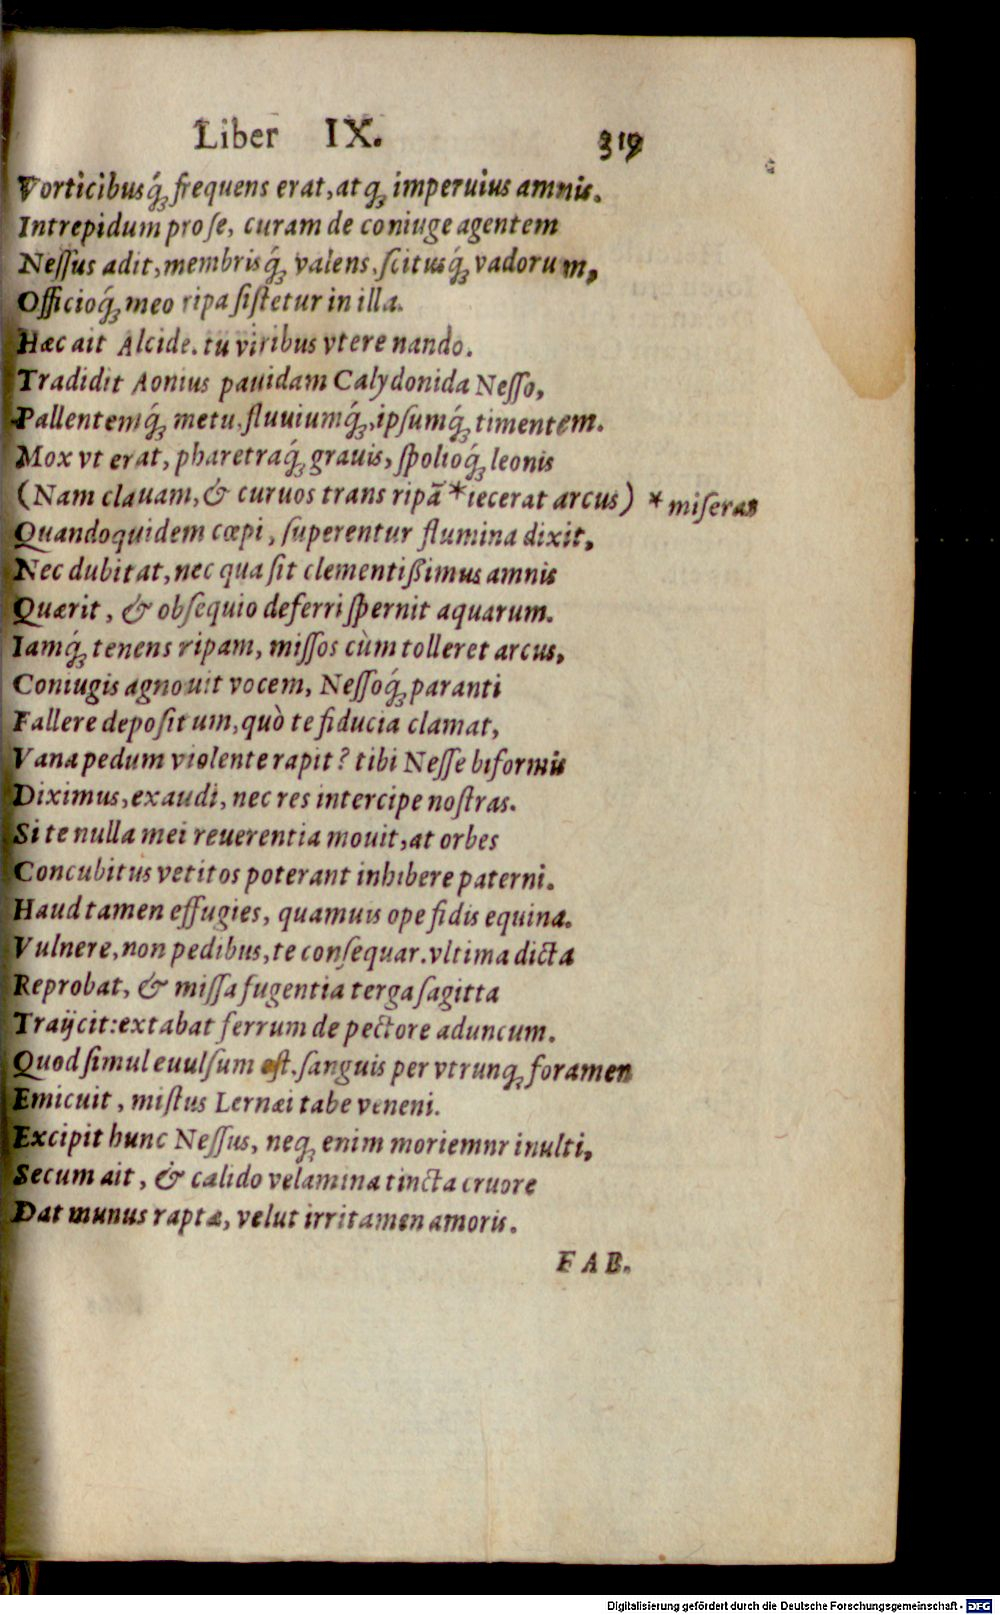 Liber IX. 319
Vorticibusq́; frequens erat, atq; imperuius amnis.
Intrepidum pro se, curam de coniuge agentem
Nessus adit, membrisq́; valens, scitusq́; vadorum,
Officioq́; meo ripa sistetur in illa.
Hæc ait Alcide. tu viribus vtere nando.
Tradidit Aonius pauidam Calydonida Nesso,
Pallentemq́; metu, fluuiumq́;, ipsumq́; timentem.
Mox vt erat, pharetraq́; grauis, spolioq́; leonis
(Nam clauam, & curuos trans ripā *iecerat arcus) * miserat
Quandoquidem cœpi, superentur flumina dixit,
Nec dubitat, nec qua sit clementißimus amnis
Quærit, & obsequio deferri spernit aquarum.
Iamq́; tenens ripam, missos cùm tolleret arcus,
Coniugis agnouit vocem, Nessoq́; paranti
Fallere depositum, quò te fiducia clamat,
Vana pedum violente rapit? tibi Nesse biformis
Diximus, exaudi, nec res intercipe nostras.
Si te nulla mei reuerentia mouit, at orbes
Concubitus vetitos poterant inhibere paterni.
Haud tamen effugies, quamuis ope fidis equina.
Vulnere, non pedibus, te consequar. vltima dicta
Reprobat, & missa fugentia terga sagitta
Traijcit: extabat ferrum de pectore aduncum.
Quod simul euulsum est, sanguis per vtrunq; foramen
Emicuit, mistus Lernæi tabe veneni.
Excipit hunc Nessus, neq; enim moriemnr inulti,
Secum ait, & calido velamina tincta cruore
Dat munus raptæ, velut irritamen amoris.
FAB.
Digitalisierung gefördert durch die Deutsche Forschungsgemeinschaft - DFG